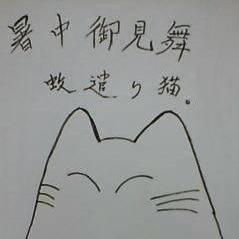 暑中御見舞
蚊遣り猫。